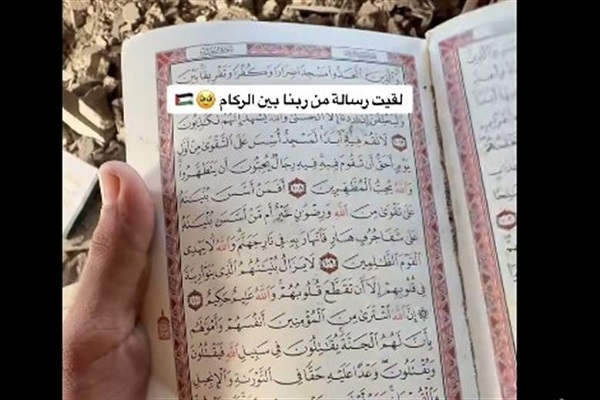 وَالَّذِينَ اتَّخَذُوا مَسْجِدًا ضِرَارًا وَكُفْرًا وَتَفْرِيقًا بَيْنَ
لقيت رسالة من ربنا بين الركام 🥹 🇵🇸
إِنْ أَرَدْنَا إِلَّا الْحُسْنَىٰ وَاللَّهُ يَشْهَدُ إِنَّهُمْ لَكَٰذِبُونَ
١٠٧ لَا تَقُمْ فِيهِ أَبَدًا لَّمَسْجِدٌ أُسِّسَ عَلَى التَّقْوَىٰ مِنْ أَوَّلِ
يَوْمٍ أَحَقُّ أَن تَقُومَ فِيهِ فِيهِ رِجَالٌ يُحِبُّونَ أَن يَتَطَهَّرُوا
وَاللَّهُ يُحِبُّ الْمُطَّهِّرِينَ ١٠٨ أَفَمَنْ أَسَّسَ بُنْيَٰنَهُ
عَلَىٰ تَقْوَىٰ مِنَ اللَّهِ وَرِضْوَٰنٍ خَيْرٌ أَم مَّنْ أَسَّسَ بُنْيَٰنَهُ
عَلَىٰ شَفَا جُرُفٍ هَارٍ فَانْهَارَ بِهِ فِي نَارِ جَهَنَّمَ وَاللَّهُ لَا يَهْدِي
الْقَوْمَ الظَّٰلِمِينَ ١٠٩ لَا يَزَالُ بُنْيَٰنُهُمُ الَّذِي بَنَوْا رِيبَةً
فِي قُلُوبِهِمْ إِلَّا أَن تَقَطَّعَ قُلُوبُهُمْ وَاللَّهُ عَلِيمٌ حَكِيمٌ ١١٠
إِنَّ اللَّهَ اشْتَرَىٰ مِنَ الْمُؤْمِنِينَ أَنفُسَهُمْ وَأَمْوَٰلَهُم
بِأَنَّ لَهُمُ الْجَنَّةَ يُقَٰتِلُونَ فِي سَبِيلِ اللَّهِ فَيَقْتُلُونَ
وَيُقْتَلُونَ وَعْدًا عَلَيْهِ حَقًّا فِي التَّوْرَىٰةِ وَالْإِنجِيلِ